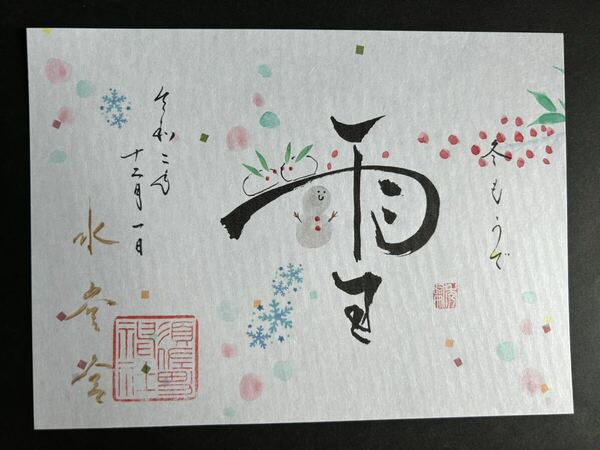 冬もうで
雪
令和二年
十二月一日
水堂
須佐男
神社